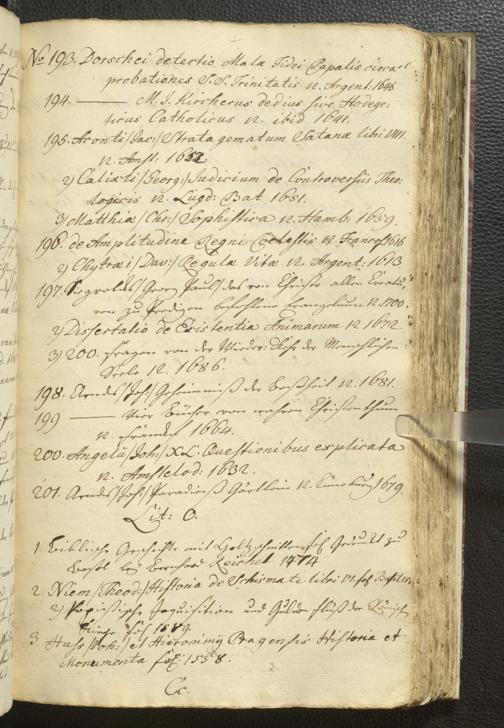 No 193. Dorschei detectio Malæ Fidei Papalis circa
probationes S. S. Trinitatis 12. Argent: 1648
194. ——— M. J. Kircherus dedius sive Hodege:
ticus Catholicus 12. ibid 1641.
195. Aconti /Jac:/ Stratagematum Satanæ libri VIII.
12. Amst: 1652
2) Calixti /Georg:/ Judicium de Controversiis Theo:
logicis 12. Lugd: Bat 1651.
3) Matthiæ /Chr:/ Sophistica 12. Hamb: 1659.
196. de Amplitudine Regni Cœlestis 12. Francof 1616
2) Chytræi /Dav:/ Regulæ Vitæ 12. Argent: 1673
197. Georg Pauls das von Christo allen Creatu:
ren zu Predigen befohlene Evangelium 12. 1700.
2) Dissertatio de Existentia Animarum 12 1672
3) 200. Fragen von der Wieder: der Menschlichen
Seele 12. 1686.
198. Arnds /Joh:/ Geheimniß der Boßheit 12. 1681.
199 ——— Vier Bücher von wahren Christenthum
12. 1664.
200. Angelii /Joh:/ XL Questionibus explicata
12. Amstelod: 1632.
201. Arnds /Joh:/ Paradieß Gärtlein 12. Lüneburg 1679.
Lit: O.
1. Biblische Geschichte mit Holtzschnitten fol Gedruckt zu
Basel bey Bernhard Reichel 1474
2. Niem /Theod:/ Historia de Schismate libri VI. fol
2) Papistische Inquisition und Gulden fluß der Römisch
fol: 1589.
3 Huss /Joh:/ et Hieronimy Pragensis Historia et
Monumenta fol: 1558.
Cc.